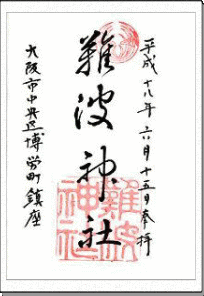 平成十八年六月十五日奉拝
難波神社
大阪市中央区博労町鎮座
難波
神社